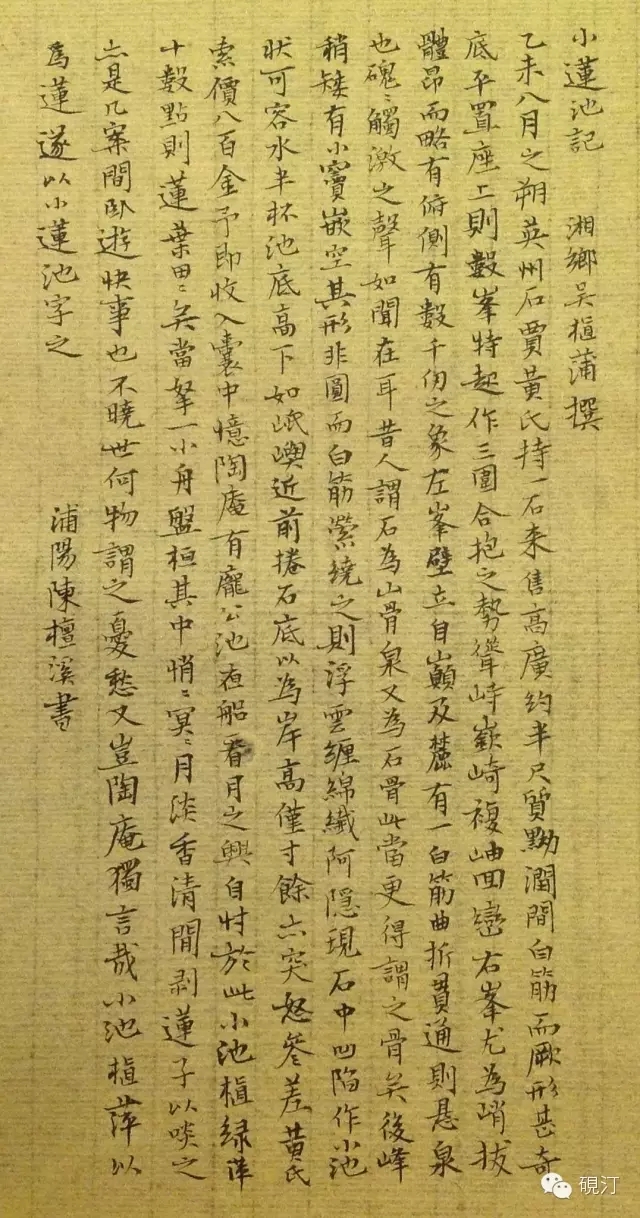 小蓮池記　湘鄉吳植蒲撰
乙未八月之朔英州石賈黃氏持一石來售高廣約半尺質黝潤間白筋而厥形甚奇
底平置座上則數峯特起作三圍合抱之勢聳峙嶔崎複岫回巒右峯尤為峭拔
體昂而略有俯側有數千仞之象左峯壁立自巔及麓有一白筋曲折貫通則懸泉
也磈〻觸激之聲如聞在耳昔人謂石為山骨泉又為石骨此當更得謂之骨矣後峰
稍矮有小竇嵌空其形非圓而白筋縈繞之則浮雲纏綿纖阿隱現石中凹陷作小池
狀可容水半杯池底高下如岻嶼近前捲石底以為岸高僅寸餘亦突怒參差黃氏
索價八百金予即收入囊中憶陶庵有龐公池夜船看月之興自忖於此小池植綠萍
十數點則蓮葉田〻矣當拏一小舟盤桓其中悄〻冥〻月淡香清閒剥蓮子以啖之
亦是几案間臥遊快事也不曉世何物謂之憂愁又豈陶庵獨言哉小池植萍以
為蓮遂以小蓮池字之　浦陽陳檀溪書
硯汀